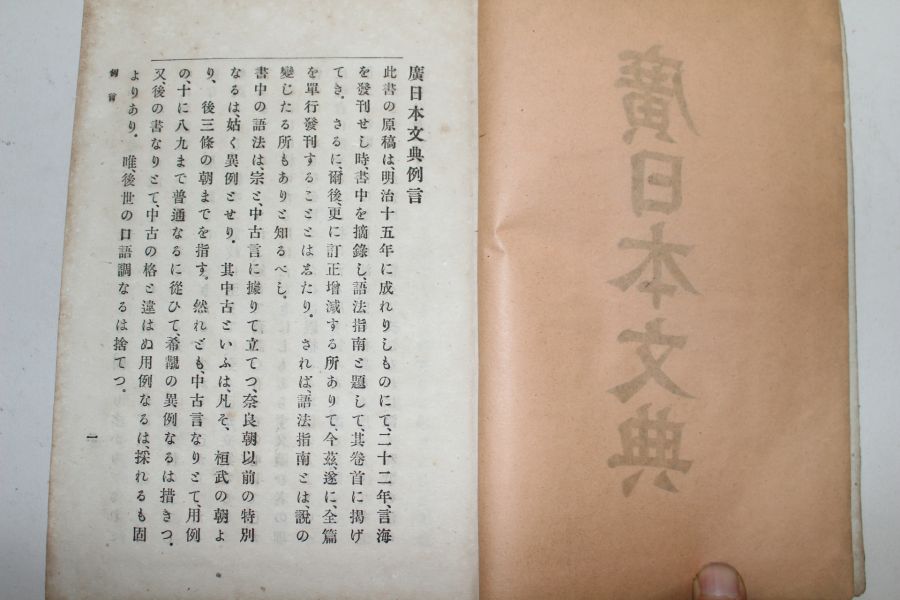 廣日本文典
廣日本文典例言
此書の原稿は明治十五年に成れりしものにて、二十二年、言海
を發刊せし時、書中を摘錄し、語法指南と題して、其卷首に揭げ
てき。さるに、爾後、更に訂正增減する所ありて、今茲、遂に、全篇
を單行發刊することとはゑたり。されば、語法指南とは、說の
變じたる所もありと知るべし。
書中の語法は、宗と、中古言に據りて立てつ、奈良朝以前の特別
なるは姑く異例とせり。其中古といふは、凡そ、桓武の朝よ
り、後三條の朝までを指す。然れども、中古言なりとて、用例
の、十に八九まで普通なるに從ひて、希覯の異例なるは措きつ。
又、後の書なりとて、中古の格と違はぬ用例なるは、採れるも固
よりあり。唯、後世の口語調なるは捨てつ。
例言
一